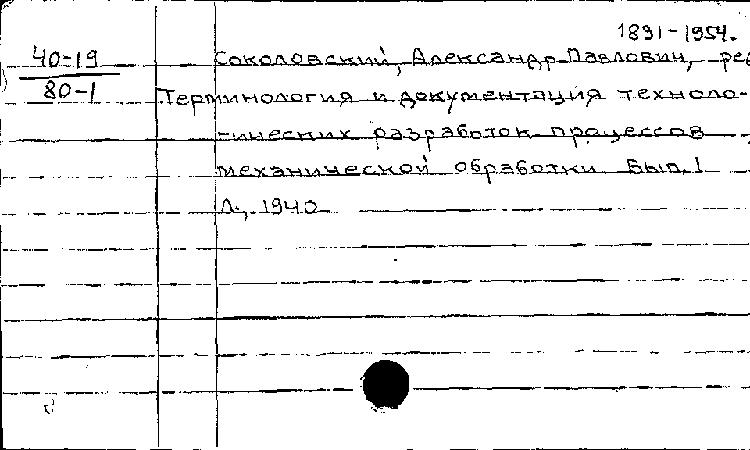 1891-1954.
40-19
80-1
Соколовский, Александр Павлович, ред
Терминология и документация техноло-
-ических разработок процессов
механической обработки Вып. 1
Л., 1940